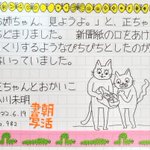 姉ちゃん、見ようよ。」と、正ちゃ
まりました。 新聞紙の口をあけ
くりするようなぴちぴちとしたのが
いっていました。
正ちゃんとおかいこ
川未明
22.6.19
982
朝活
書写